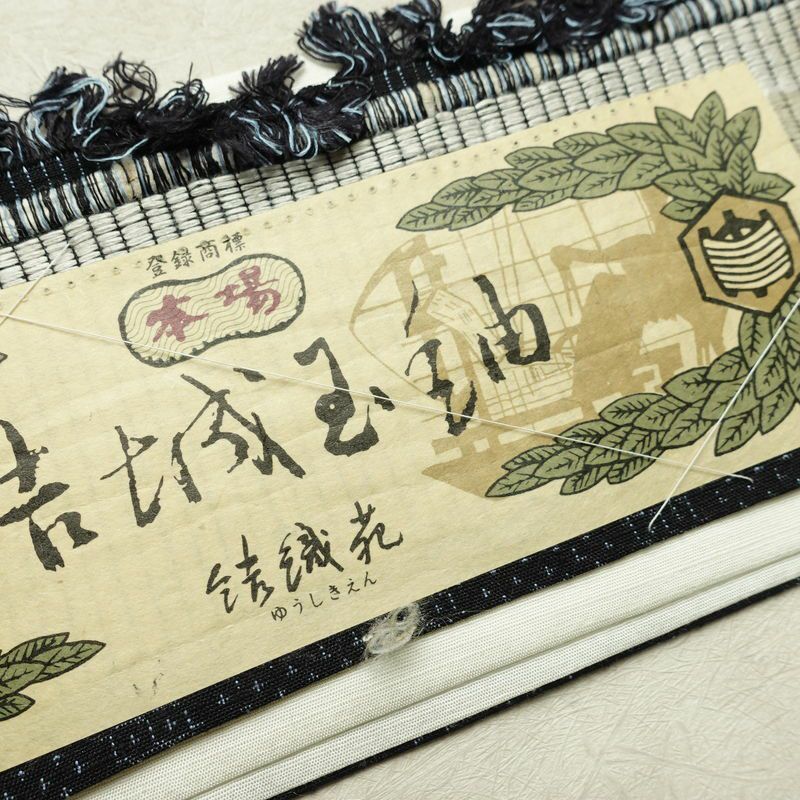 登録商標
本場
結城玉紬
結織苑
ゆうしきえん